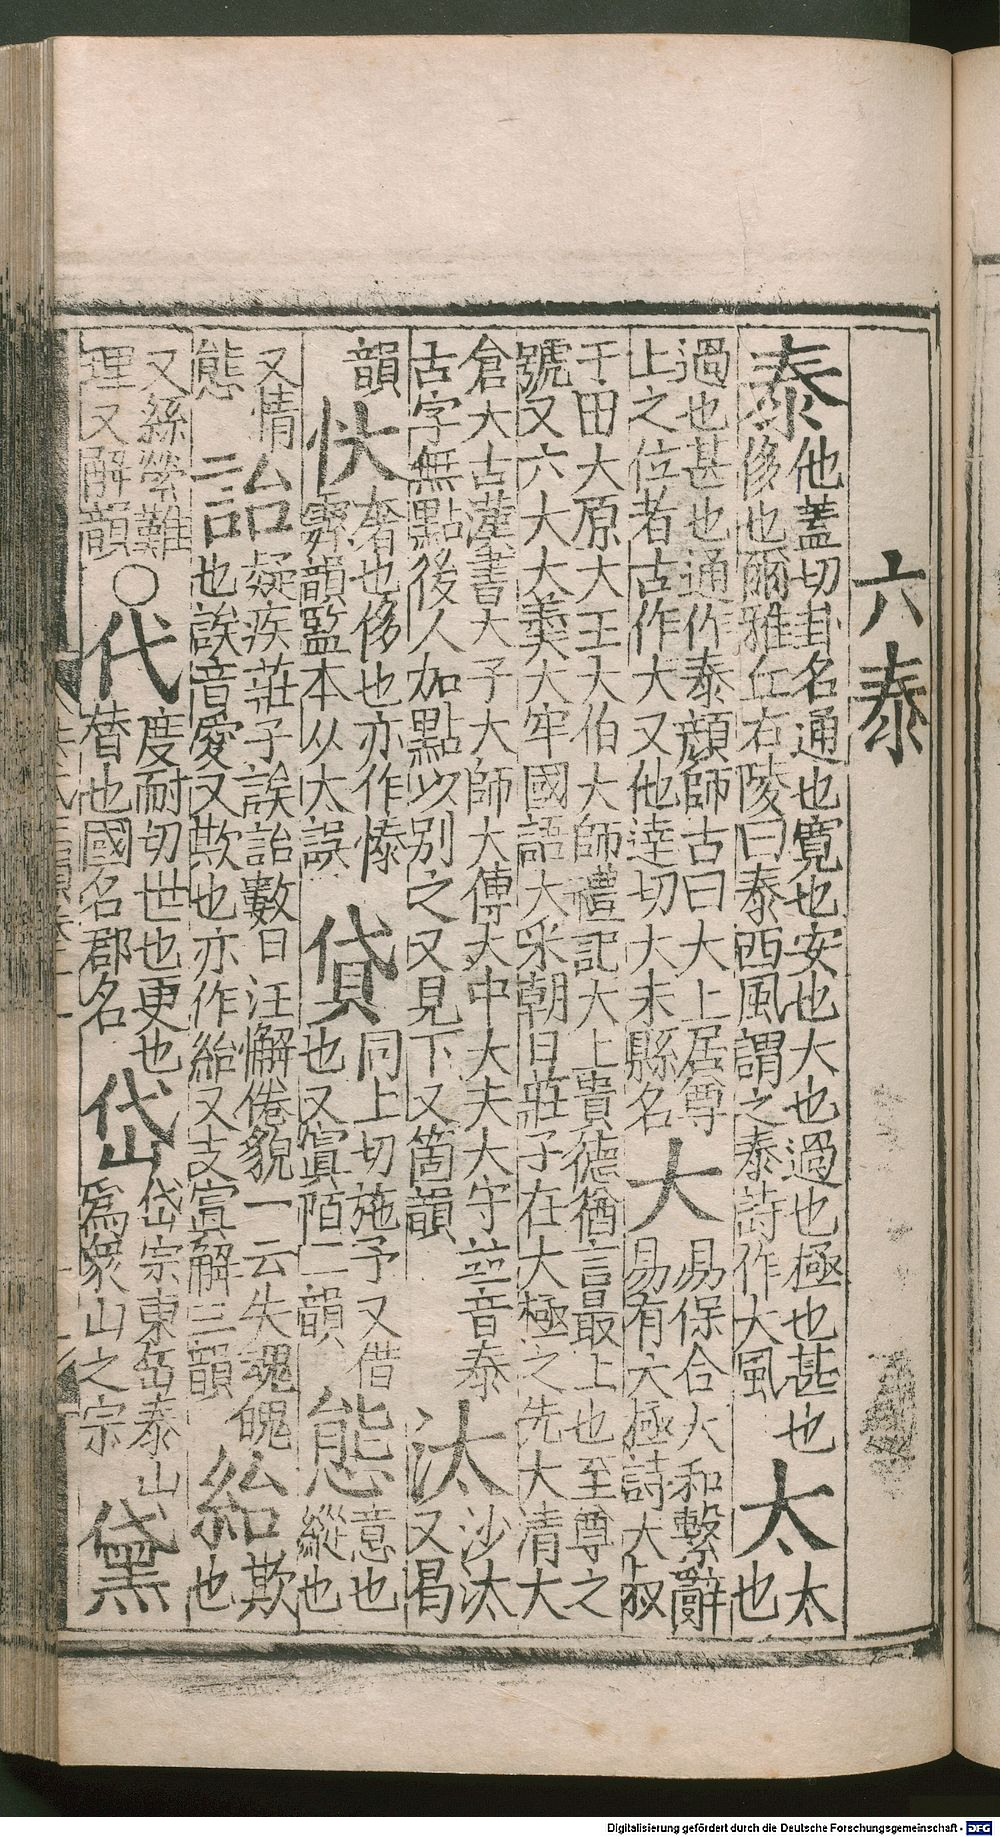 六泰
泰 他蓋切卦名通也寬也安也大也過也極也甚也
侈也爾雅丘右陵曰泰西風謂之泰詩作大風 太 太
也
過也甚也通作泰顔師古曰大上居尊
上之位者古作大又他達切大末縣名 大 易保合大和繫辭
易有大極詩大叔
于田大原大王大伯大師禮記大上貴德猶言最上也至尊之
號又六大大羹大牢國語大采朝日莊子在大極之先大清大
倉大古漢書大予大師大傅大中大夫大守並音泰
古字無點後人加點以別之又見下又箇韻 汰 沙汰
又曷
韻 忕 奢也侈也亦作愫
霽韻監本从大誤 貸 同上切施予又借
也又寘陌二韻 態 意也
縱也
又情
態 詒 疑疾莊子誒詒數日汪懈倦貌一云失魂魄
也誒音愛又欺也亦作紿又支寘解三韻 紿 欺
也
又絲勞難
理又解韻 ○ 代 度耐切世也更也
替也國名郡名 岱 岱宗東岳泰山
爲衆山之宗 黛
Digitalisierung gefördert durch die Deutsche Forschungsgemeinschaft - DFG